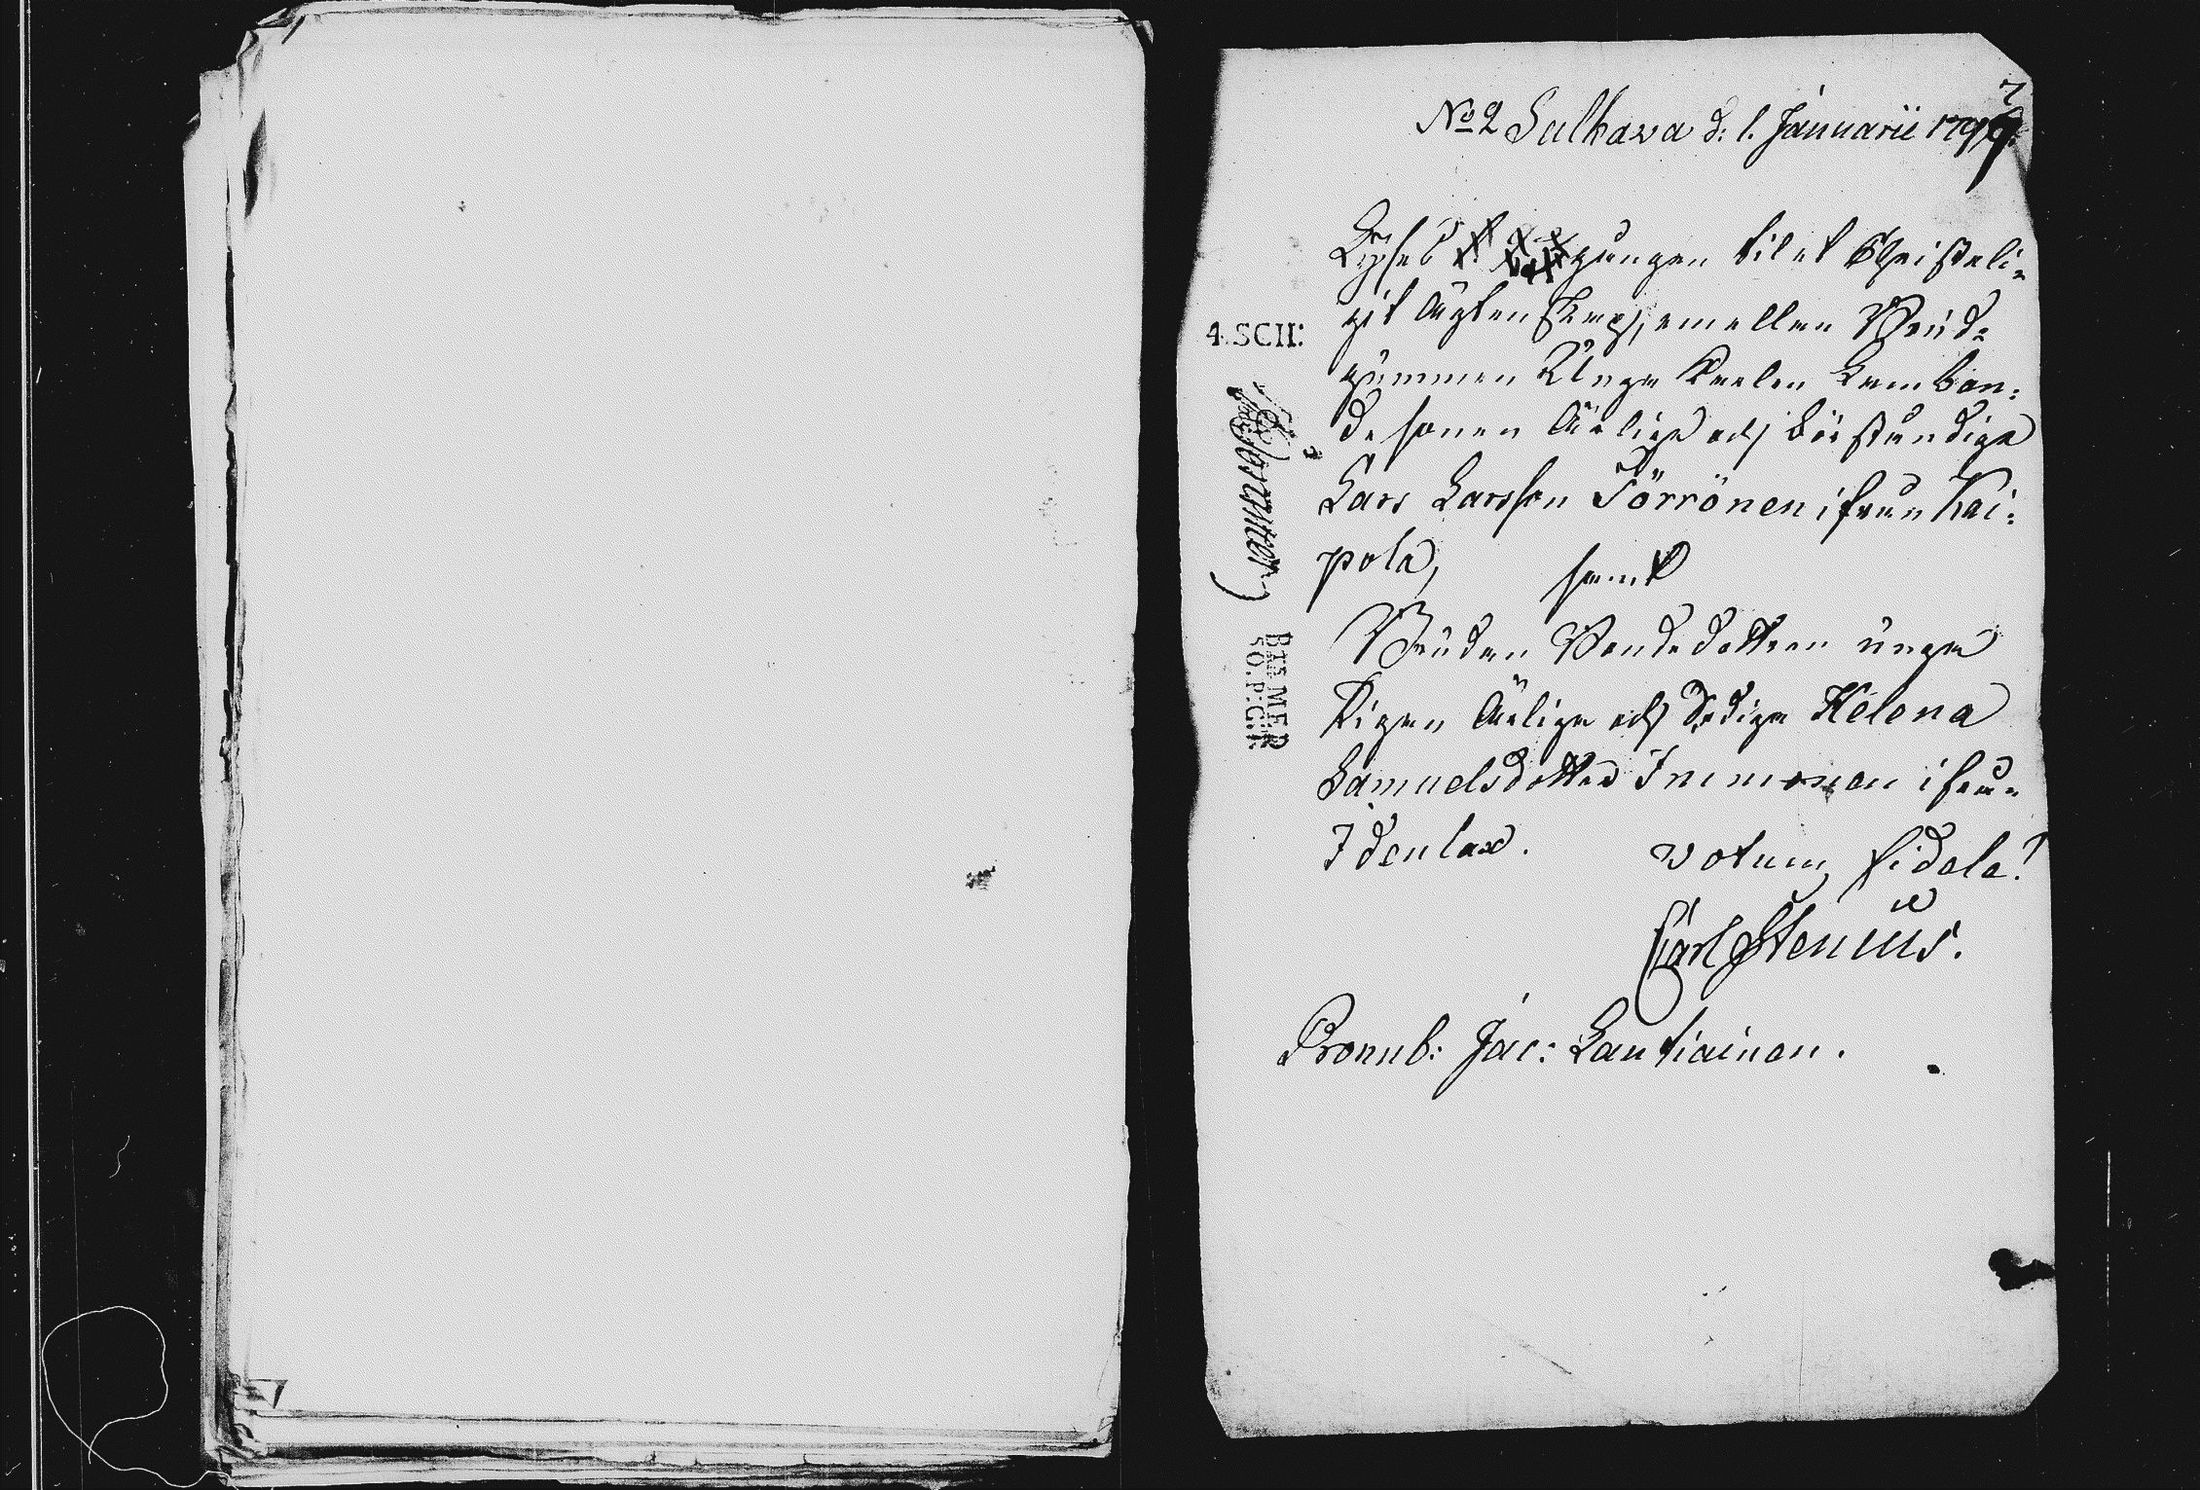 No 2 Sulkava d: 1. Januarii 1797.
7
Lyses gången til et Christeli=
git Ägtenskap, emellan Brud=
gummen Unge Karlen Lambon=
de sonen Ärlige och Beständige
Lars Larsson Törrönen ifrån Kai=
pola,     samt
Bruden Bondedottren unga
Pigan Ärliga och Sediga Helena
Samuelsdotter Immonen ifrån
Idenlax.     votum fidele!
Carl Stenius.
Pronub: Jac: Lautiainen.
4.SCH:
BTE MED
SO.P:G:R